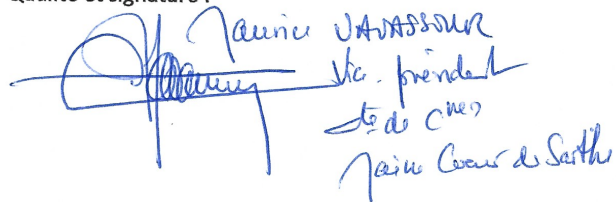 Qualité et signature :
Maurice VAVASSEUR
Vice-président
Cté de Cnes
Maine Coeur de Sarthe